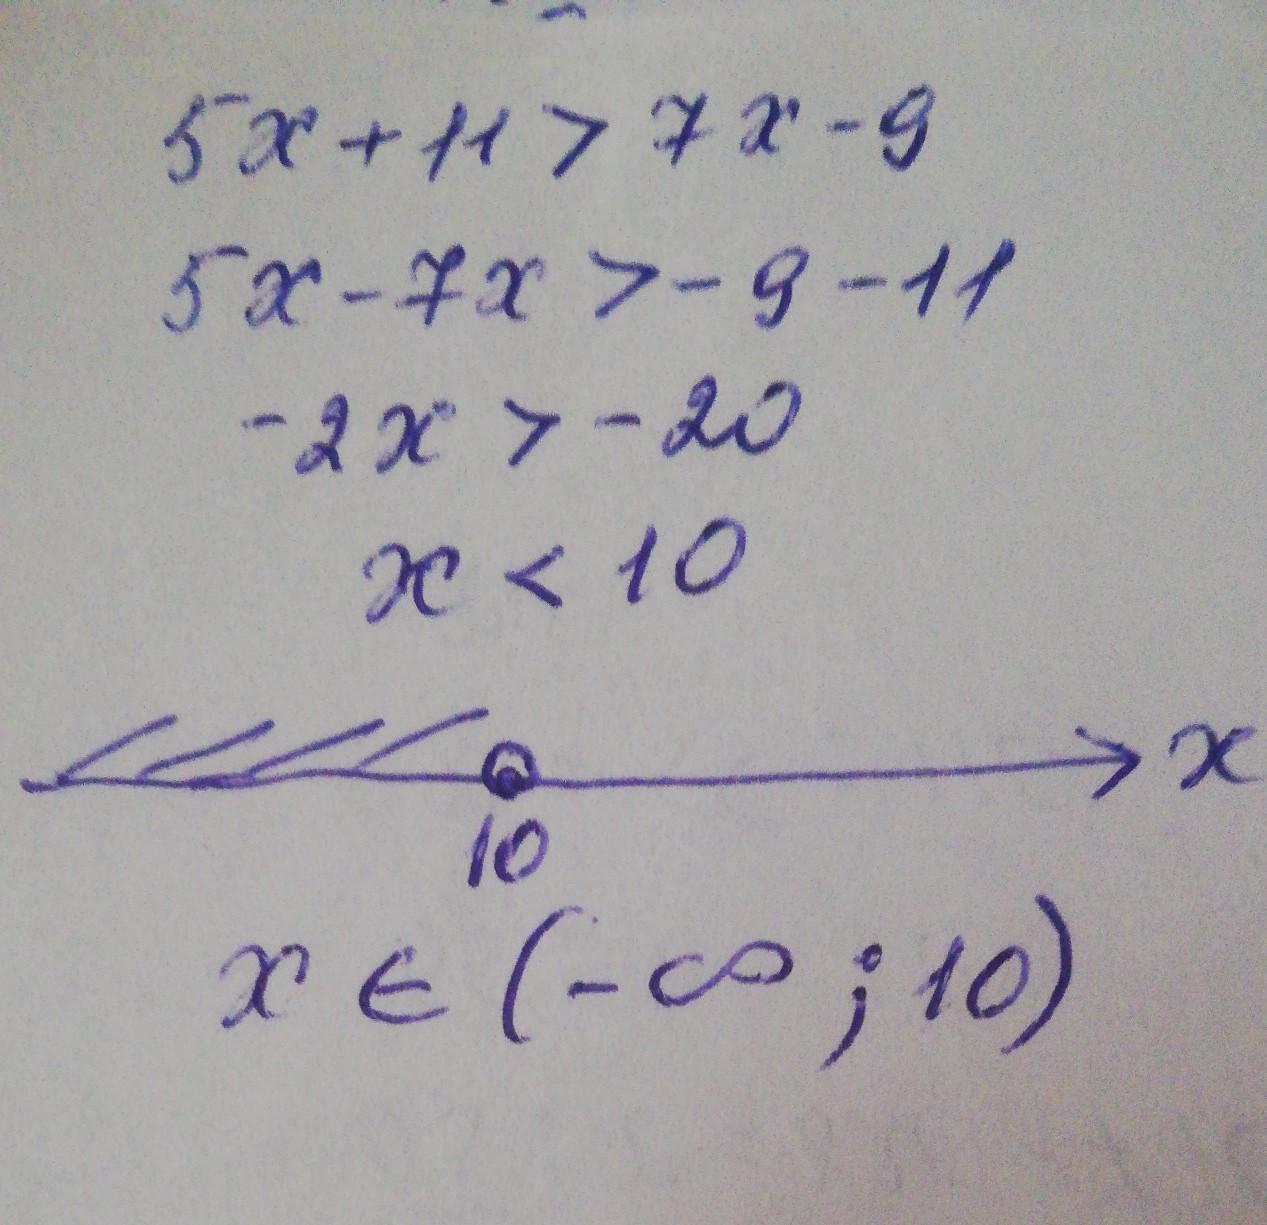 5x + 11 > 7x - 9
5x - 7x > - 9 - 11
-2x > -20
x < 10
x
10
x ∈ (-∞ ; 10)